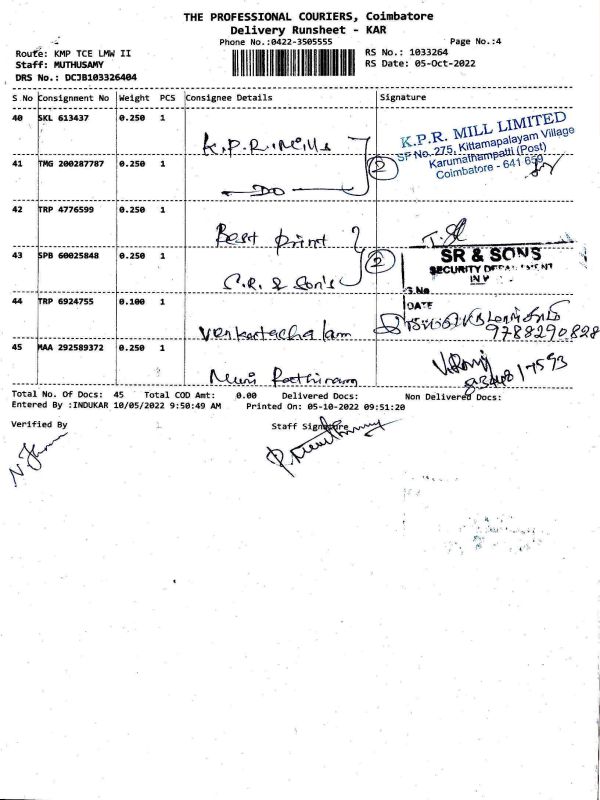 THE PROFESSIONAL COURIERS, Coimbatore
Delivery Runsheet - KAR
Phone No.:0422-3505555 Page No.:4
Route: KMP TCE LMW II RS No.: 1033264
Staff: MUTHUSAMY RS Date: 05-Oct-2022
DRS No.: DCJB103326404
S No Consignment No Weight PCS Consignee Details Signature
40 SKL 613437 0.250 1 K.P.R. Mills
K.P.R. MILL LIMITED
SF No. 275, Kittampalayam Village
Karumathampatti (Post)
Coimbatore - 641 659
41 TMG 200287787 0.250 1 DO 2
42 TRP 4776599 0.250 1 Best print
43 SPB 60025848 0.250 1 C.R. & Son's 2
SR & SONS
SECURITY DEPARTMENT
S.No
DATE
44 TRP 6924755 0.100 1 Venkatachalam
9788290828
45 MAA 292589372 0.250 1 Muni
Total No. Of Docs: 45 Total COD Amt: 0.00 Delivered Docs: Non Delivered Docs:
Entered By :INDUKAR 10/05/2022 9:50:49 AM Printed On: 05-10-2022 09:51:20
Verified By Staff Signature